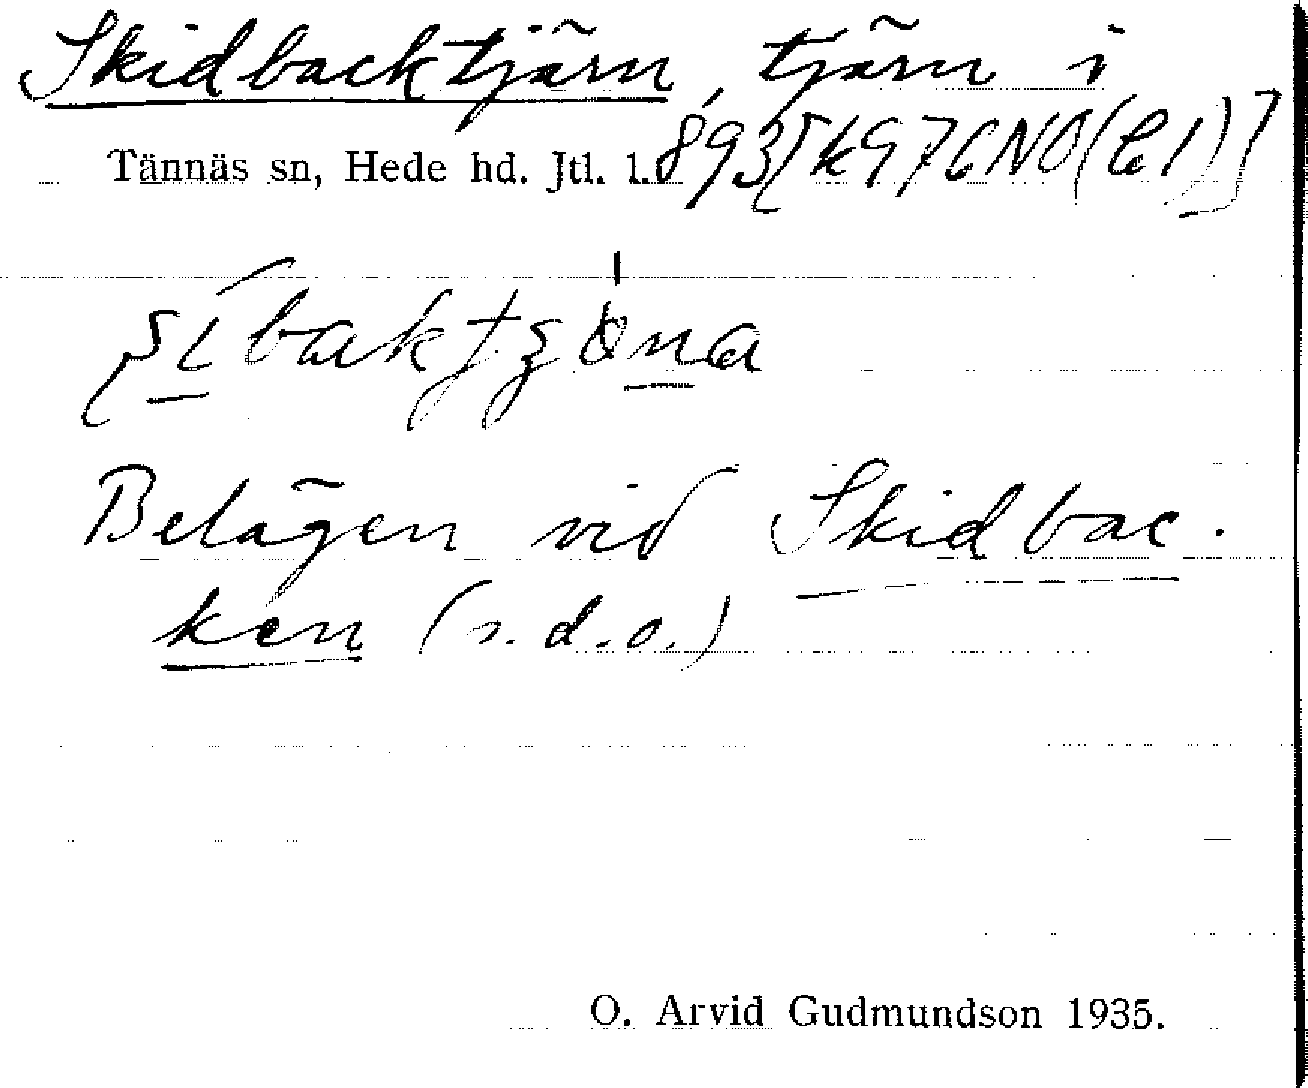 Skidbacktjärn, tjärn i
Tännäs sn, Hede hd. Jtl. l. 893[k976NO(l1)]
Belägen vid Skidbac-
ken (s.d.o.)
O. Arvid Gudmundson 1935.